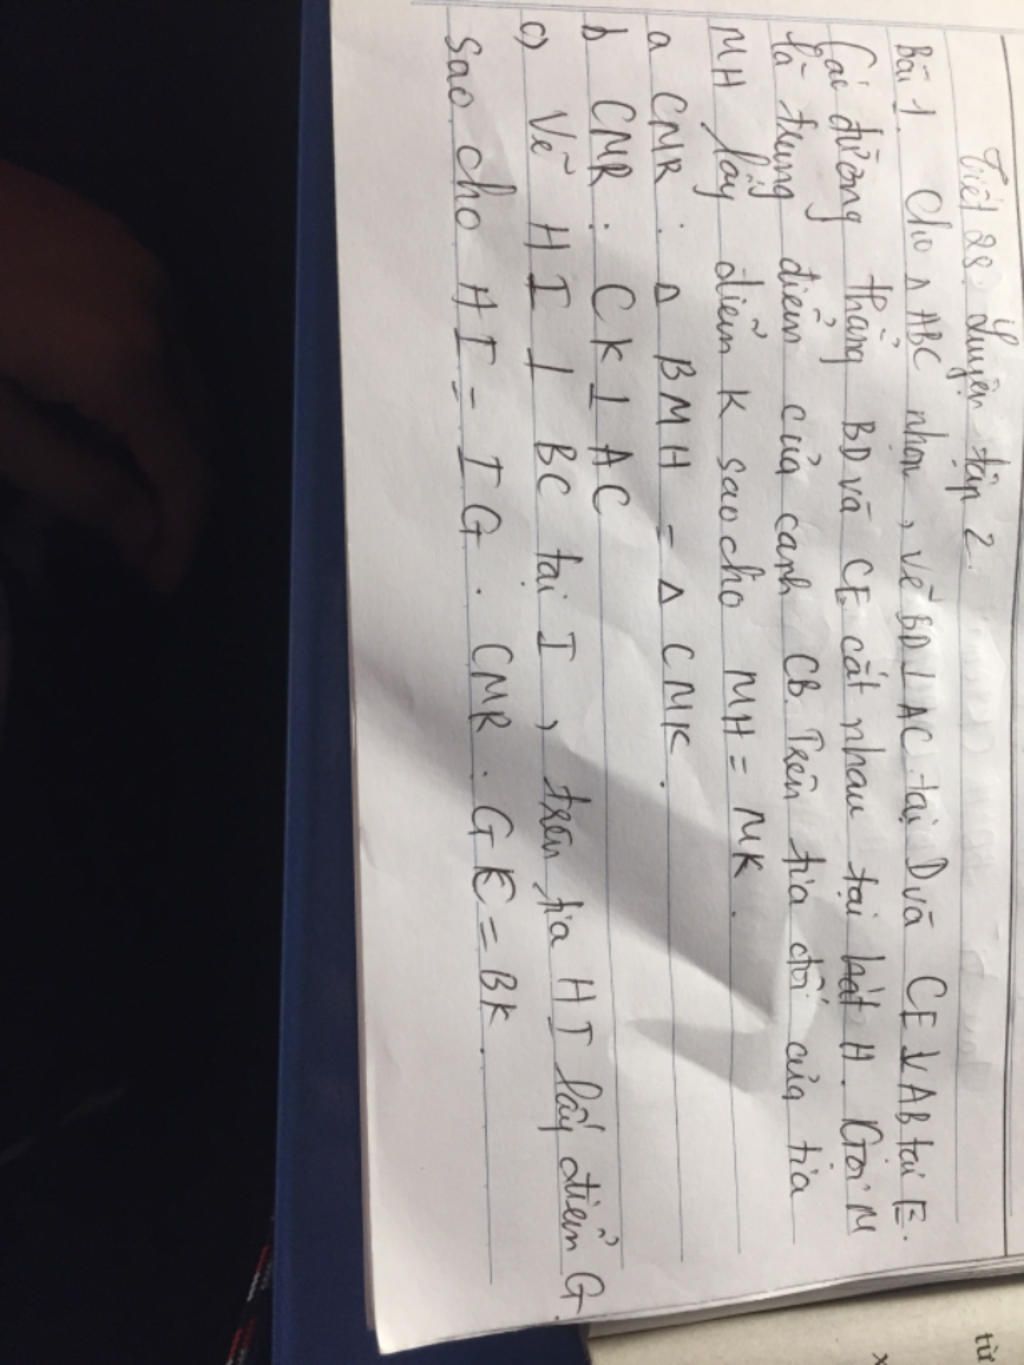 Tiết 28: Luyện tập 2.
Bài 1. Cho Δ ABC nhọn, vẽ BD ⊥ AC tại D và CE ⊥ AB tại E.
Các đường thẳng BD và CE cắt nhau tại H. Gọi M
là trung điểm của cạnh CB. Trên tia đối của tia
MH lấy điểm K sao cho MH = MK.
a CMR: Δ BMH = Δ CMK.
b CMR: CK ⊥ AC
c) Vẽ HI ⊥ BC tại I, trên tia HI lấy điểm G.
sao cho HI = IG. CMR. GK = BK.
từ
x